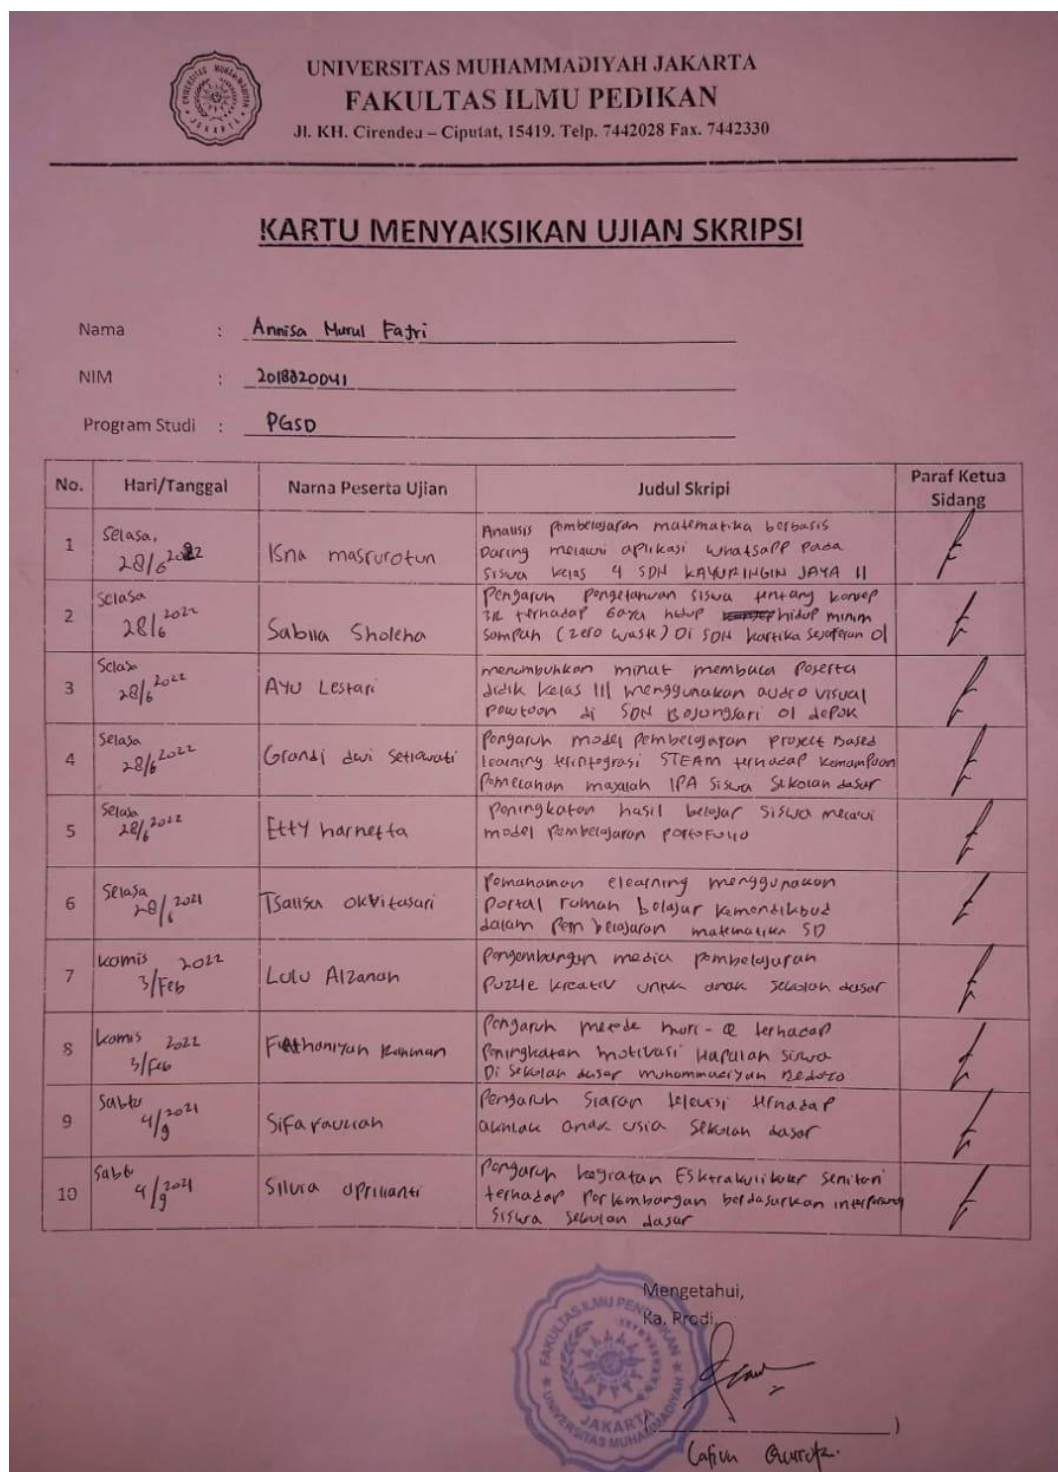 UNIVERSITAS MUHAMMADIYAH JAKARTA
FAKULTAS ILMU PEDIKAN
Jl. KH. Cirendeu – Ciputat, 15419. Telp. 7442028 Fax. 7442330
KARTU MENYAKSIKAN UJIAN SKRIPSI
Nama : Annisa Nurul Fajri
NIM : 2018820041
Program Studi : PGSD
No. Hari/Tanggal Nama Peserta Ujian Judul Skripi Paraf Ketua Sidang
1 Selasa, 28/6 2022 Isna masrurotun
Analisis pembelajaran matematika berbasis
Daring melalui aplikasi whatsapp pada
siswa kelas 4 SDN KAYURINGIN JAYA II
2 Selasa 28/6 2022 Sabila Sholeha
Pengaruh pengetahuan siswa tentang konsep
3R terhadap Gaya hidup hidup minim
sampah (zero waste) Di SDN kartika 01
3 Selasa 28/6 2022 Ayu Lestari
menumbuhkan minat membaca Peserta
didik kelas III menggunakan audio visual
powtoon di SDN Bojongsari 01 depok
4 Selasa 28/6 2022 Grandi dewi Setiawati
Pengaruh model pembelajaran project Based
learning terintegrasi STEAM terhadap kemampuan
Pemecahan masalah IPA siswa sekolah dasar
5 Selasa 28/6 2022 Etty harnetta
Peningkatan hasil belajar siswa melalui
model pembelajaran portofolio
6 Selasa 28/6 2021 Tsalisa Okvitasari
Pemahaman elearning menggunakan
portal rumah belajar kemendikbud
dalam pembelajaran matematika SD
7 kamis 3/Feb 2022 Lulu Alzanah
Pengembangan media pembelajaran
Puzzle kreativ untuk anak sekolah dasar
8 kamis 3/Feb 2022 Rahman
Pengaruh metode muri-Q terhadap
Peningkatan motivasi Hapalan siswa
Di sekolah dasar muhammadiyah
9 Sabtu 4/9 2021 Sifa fauziah
Pengaruh siaran televisi terhadap
akhlak anak usia sekolah dasar
10 Sabtu 4/9 2021 Silvia aprilianti
Pengaruh kegiatan Esktrakulikuler senitari
terhadap Perkembangan berdasarkan
siswa sekolah dasar
Mengetahui,
Ka. Prodi,
FAKULTAS ILMU PENDIDIKAN
UNIVERSITAS MUHAMMADIYAH
JAKARTA